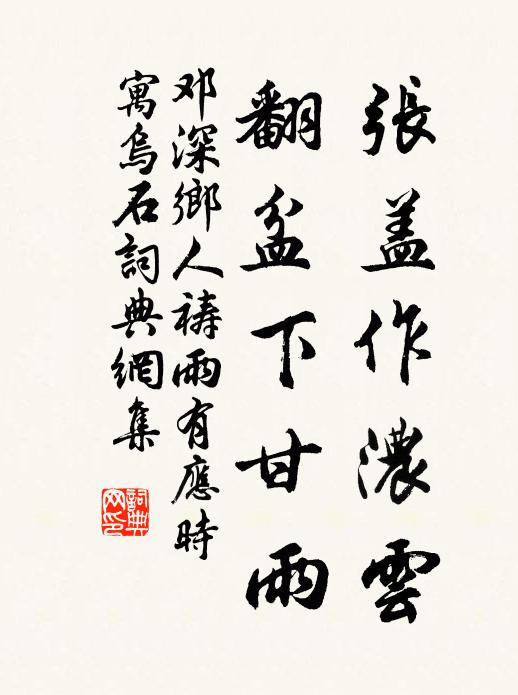 張盖作濃雲
翻盆下甘雨
邓深鄉人祷雨有應時
寓烏石詞典網集
詞典
网印